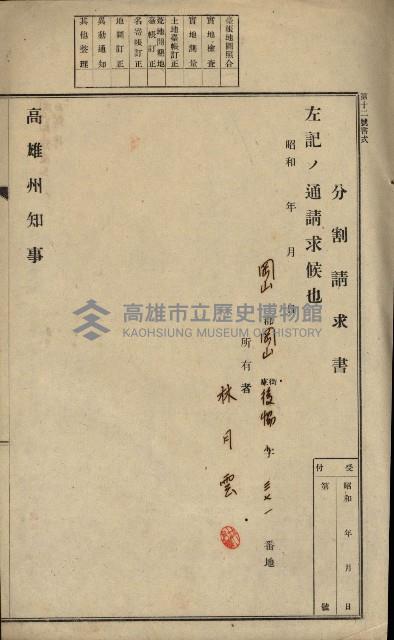 第十二號書式
分割請求書
左記ノ通請求候也
昭和 年 月 日
岡山郡岡山街庄後協 字 三七一 番地
所有者
林月雲
高雄州知事
受付
昭和 年 月 日
第 號
臺帳地圖照合
實地檢查
實地測量
土地臺帳訂正
地圖訂正
異動通知
其他整理
高雄市立歷史博物館
KAOHSIUNG MUSEUM OF HISTORY